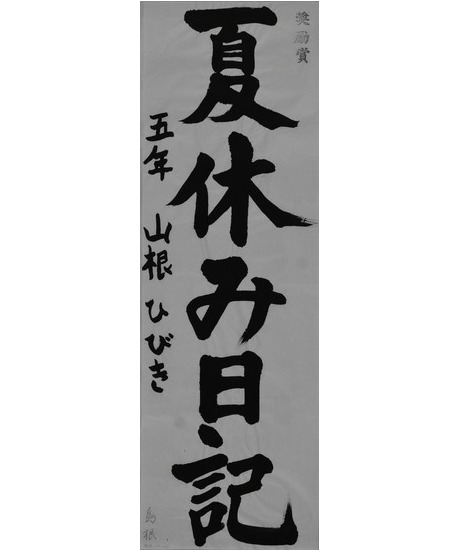 奨励賞
夏休み日記
五年 山根 ひびき
島根